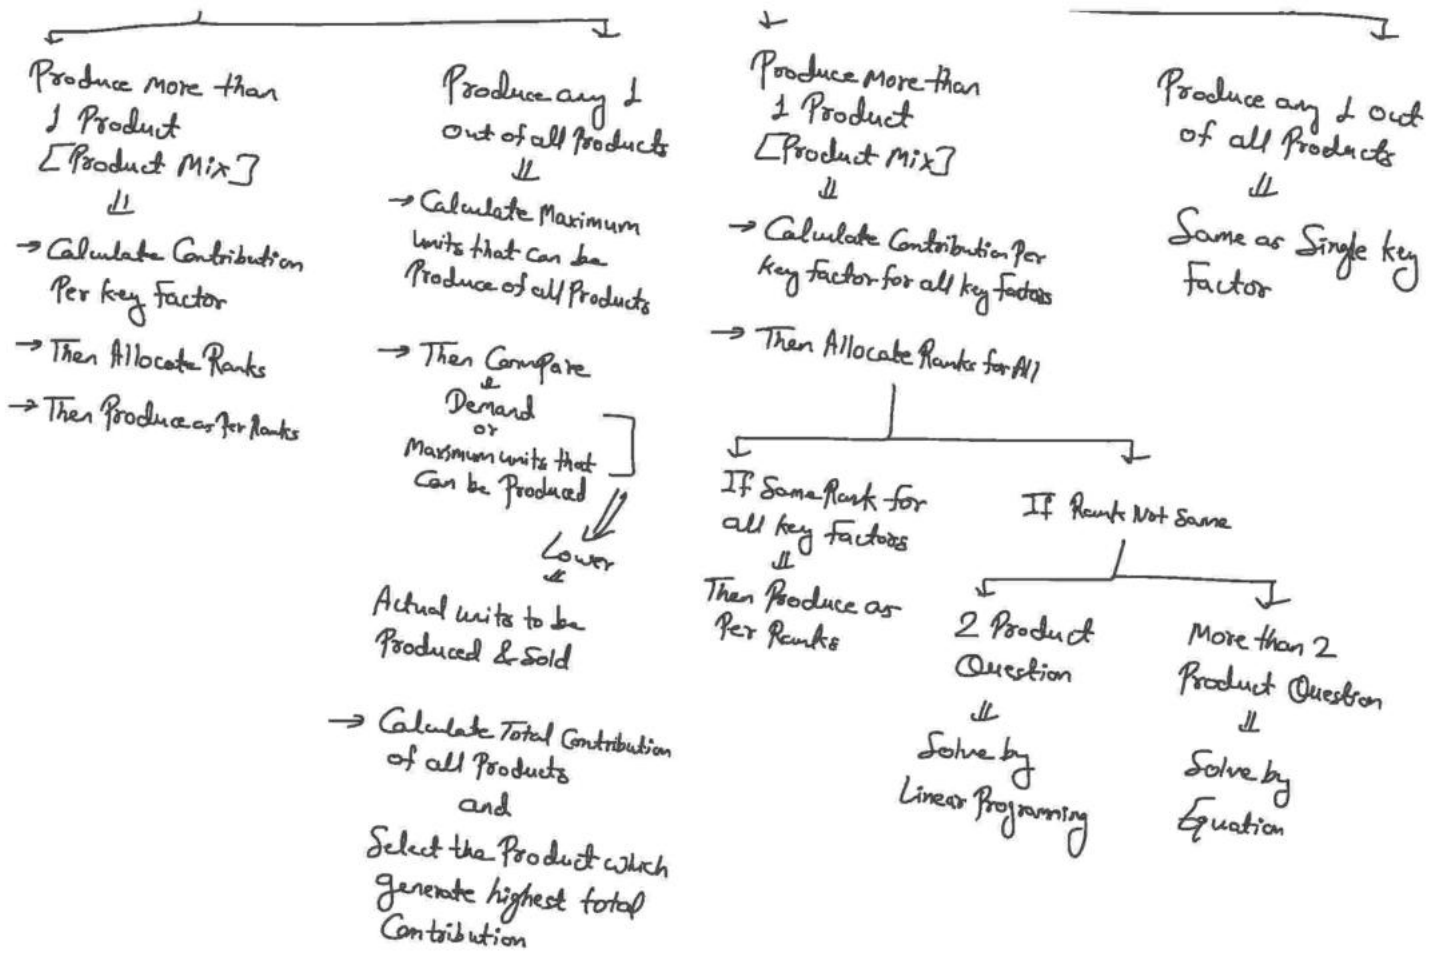 Produce More than
1 Product
[Product Mix]
→ Calculate Contribution
Per key factor
→ Then Allocate Ranks
→ Then Produce as Per Ranks
Produce any 1
out of all Products
→ Calculate Maximum
units that can be
Produce of all Products
→ Then Compare
Demand
or
Maximum units that
Can be Produced
Lower
Actual units to be
Produced & Sold
→ Calculate Total Contribution
of all Products
and
Select the Product which
generate highest total
Contribution
Produce More than
1 Product
[Product Mix]
→ Calculate Contribution Per
key factor for all key factors
→ Then Allocate Ranks for All
If Same Rank for
all key factors
Then Produce as
Per Ranks
If Rank Not Same
2 Product
Question
Solve by
Linear Programing
More than 2
Product Question
Solve by
Equation
Produce any 1 out
of all Products
Same as Single key
factor